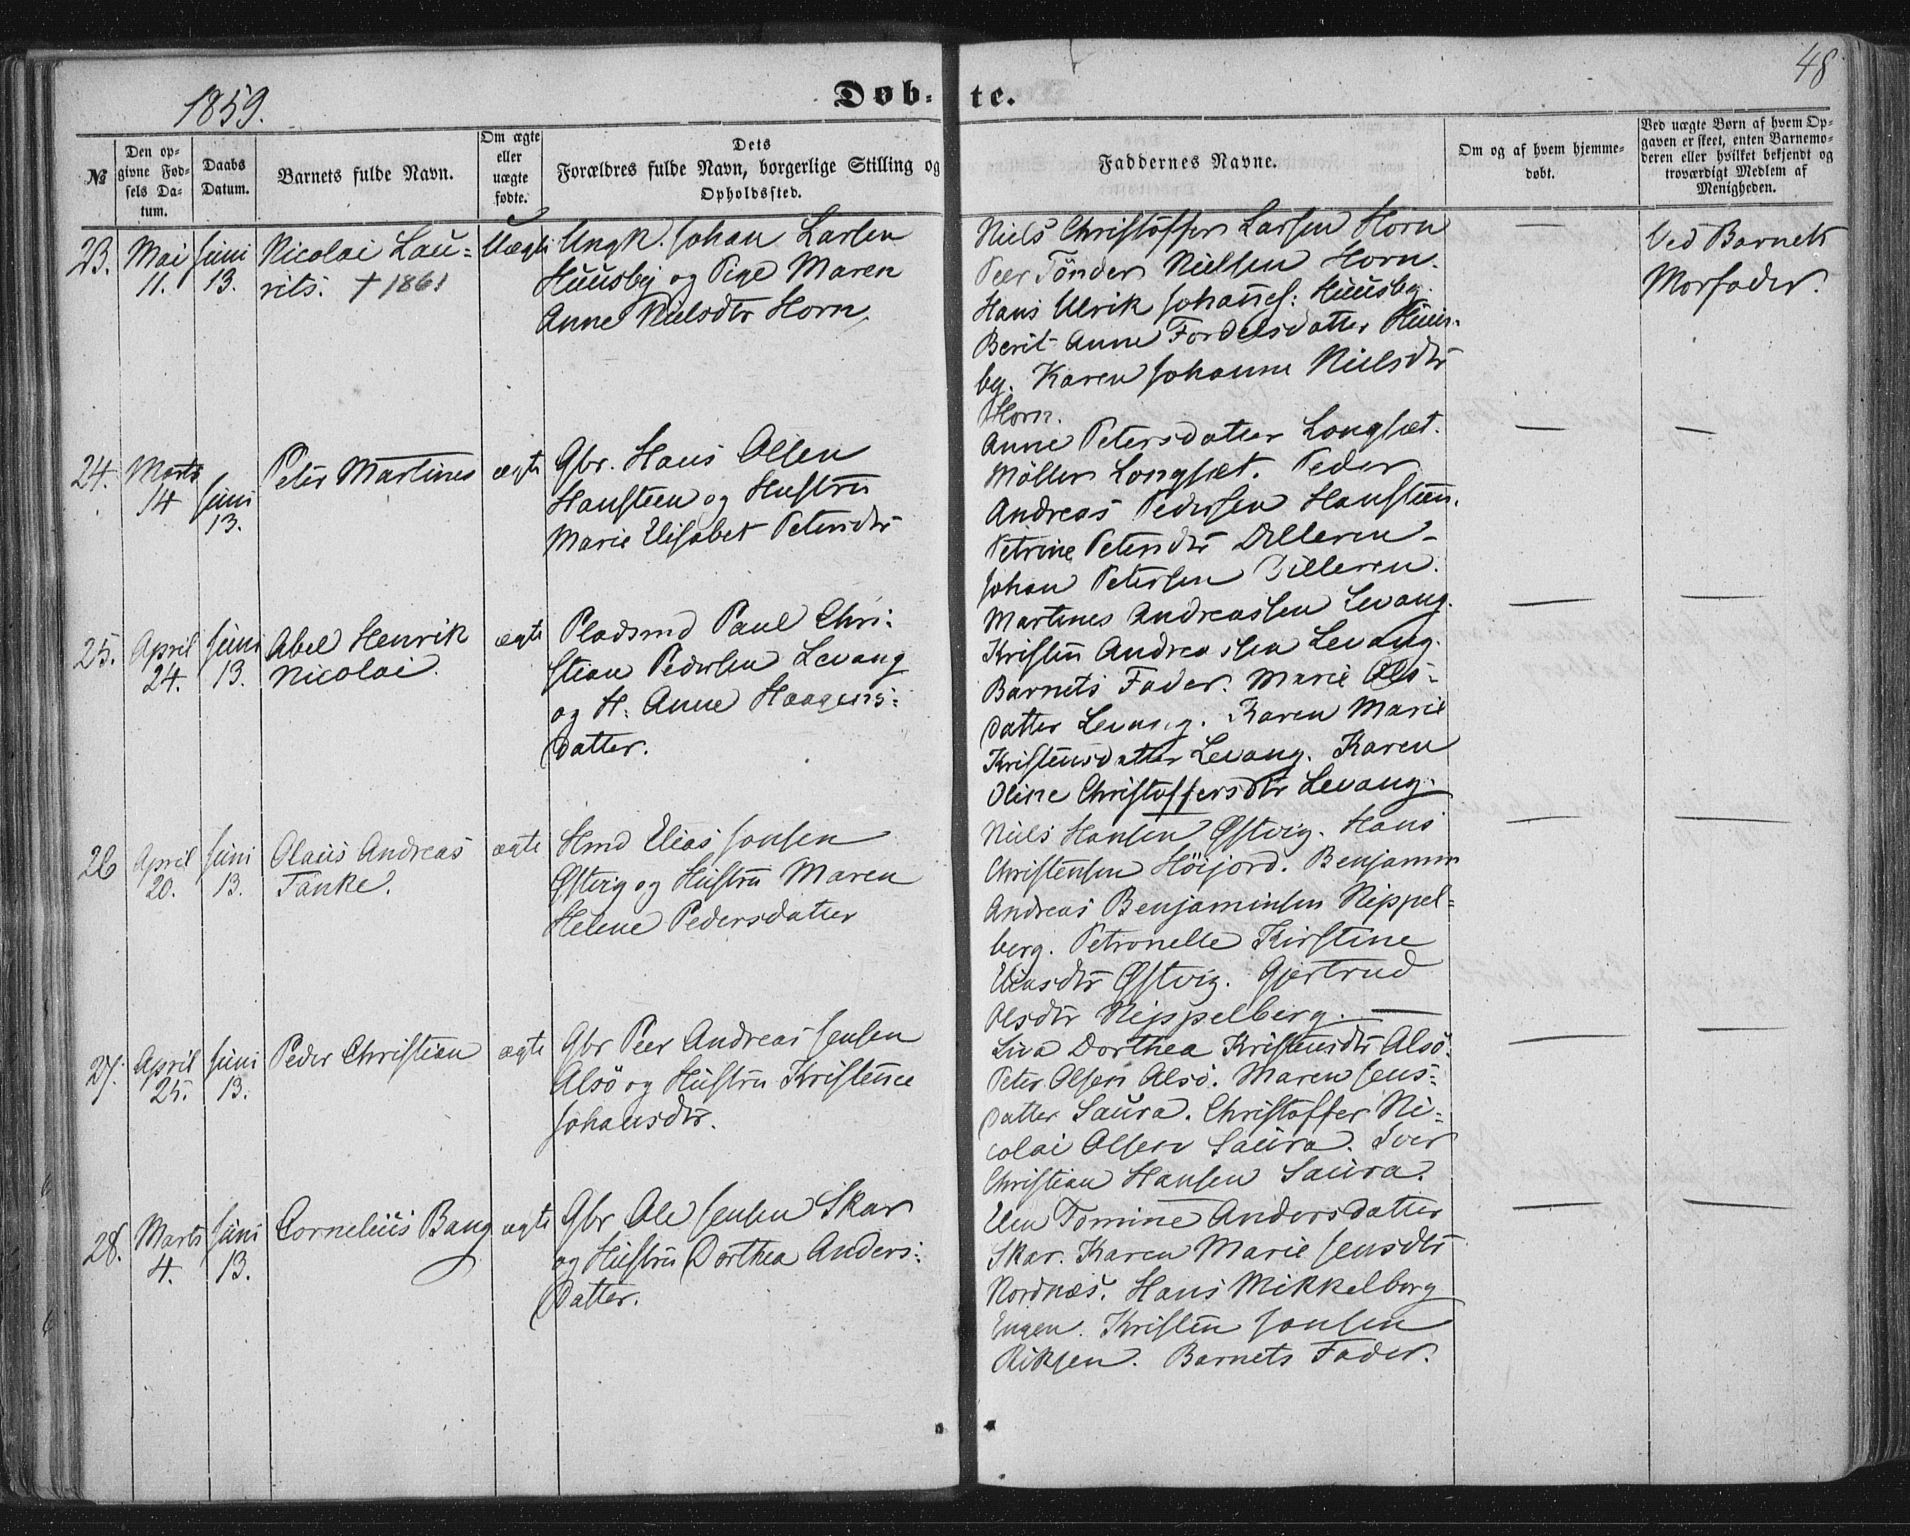 48
1859.
Døb-te.
№
Den op-
givne Fød-
sels Da-
tum.
Daabs
Datum.
Barnets fulde Navn.
Om ægte
eller
uægte
fødte.
Dets
Forældres fulde Navn, borgerlige Stilling og
Opholdssted.
Faddernes Navne.
Om og af hvem hjemme-
døbt.
Ved uægte Børn af hvem Op-
gaven er skeet, enten Barnemo-
deren eller hvilket bekjendt og
troværdigt Medlem af
Menigheden.
23.
Mai
11.
Juni
13.
Nicolai Lau-
rits. † 1861
Uægte
Ungk. Johan Larsen
Huusby og Pige Maren
Anne Nielsdtr Horn.
Niels Christoffer Larsen Horn
Peer Tönder Nielsen Horn.
Hans Ulrik Johannes: Huusby.
Berit Anne Fordelsdatter Huus-
by. Karen Johanne Nielsdtr
Horn.
—
Ved Barnets
Morfader.
24.
Marts
14
Juni
13.
Peter Martines
ægte
Gbr. Hans Olsen
Hansteen og Hustru
Marie Elisabet Petersdtr
Anne Petersdatter Longset.
Möller Longset. Peder
Andreas Pedersen Hansteen.
Petrine Petersdtr Dilleren-
Johan Petersen Dilleren.
—
—
25.
April
24.
Juni
13.
Abel Henrik
Nicolai.
ægte
Pladsmd Paul Chri-
stian Pedersen Levang
og H: Anne Haagens:
datter.
Martines Andreassen Levang.
Kristen Andreassen Levang.
Barnets Fader. Marie Ols-
datter Levang. Karen Marie
Kristensdatter Levang. Karen
Oline Christoffersdtr Levang.
—
—
26
April
20.
Juni
13.
Olaus Andreas
Tanke.
ægte
Hmd Elias Jonsen
Østvig og Hustru Maren
Helene Pedersdatter
Niels Hansen Østvig. Hans
Christensen Höijord. Benjamin
Andreas Benjaminsen Nippel=
berg. Petronelle Kirstine
Eliasdtr Østvig. Gjertrud
Olsdtr Nippelberg. —
—
—
27.
April
25.
Juni
13.
Peder Christian
ægte
Gbr Peer Andreas Jensen
Alsö og Hustru Kristence
Johansdtr.
Liva Dorthea Kristensdtr Alsö.
Peter Olsen Alsö. Maren Jens-
datter Saura. Christoffer Ni-
colai Olsen Saura. Iver
Christian Hansen Saura.
—
—
28.
Marts
4.
Juni
13.
Cornelius Bang
ægte
Gbr Ole Jensen Skar
og Hustru Dorthea Anders:
datter.
Elen Tomine Andersdatter
Skar. Karen Marie Jensdtr
Nordnæs. Hans Mikkelborg
Engen. Kristen Jonsen
Riksen. Barnets Fader.
—
—